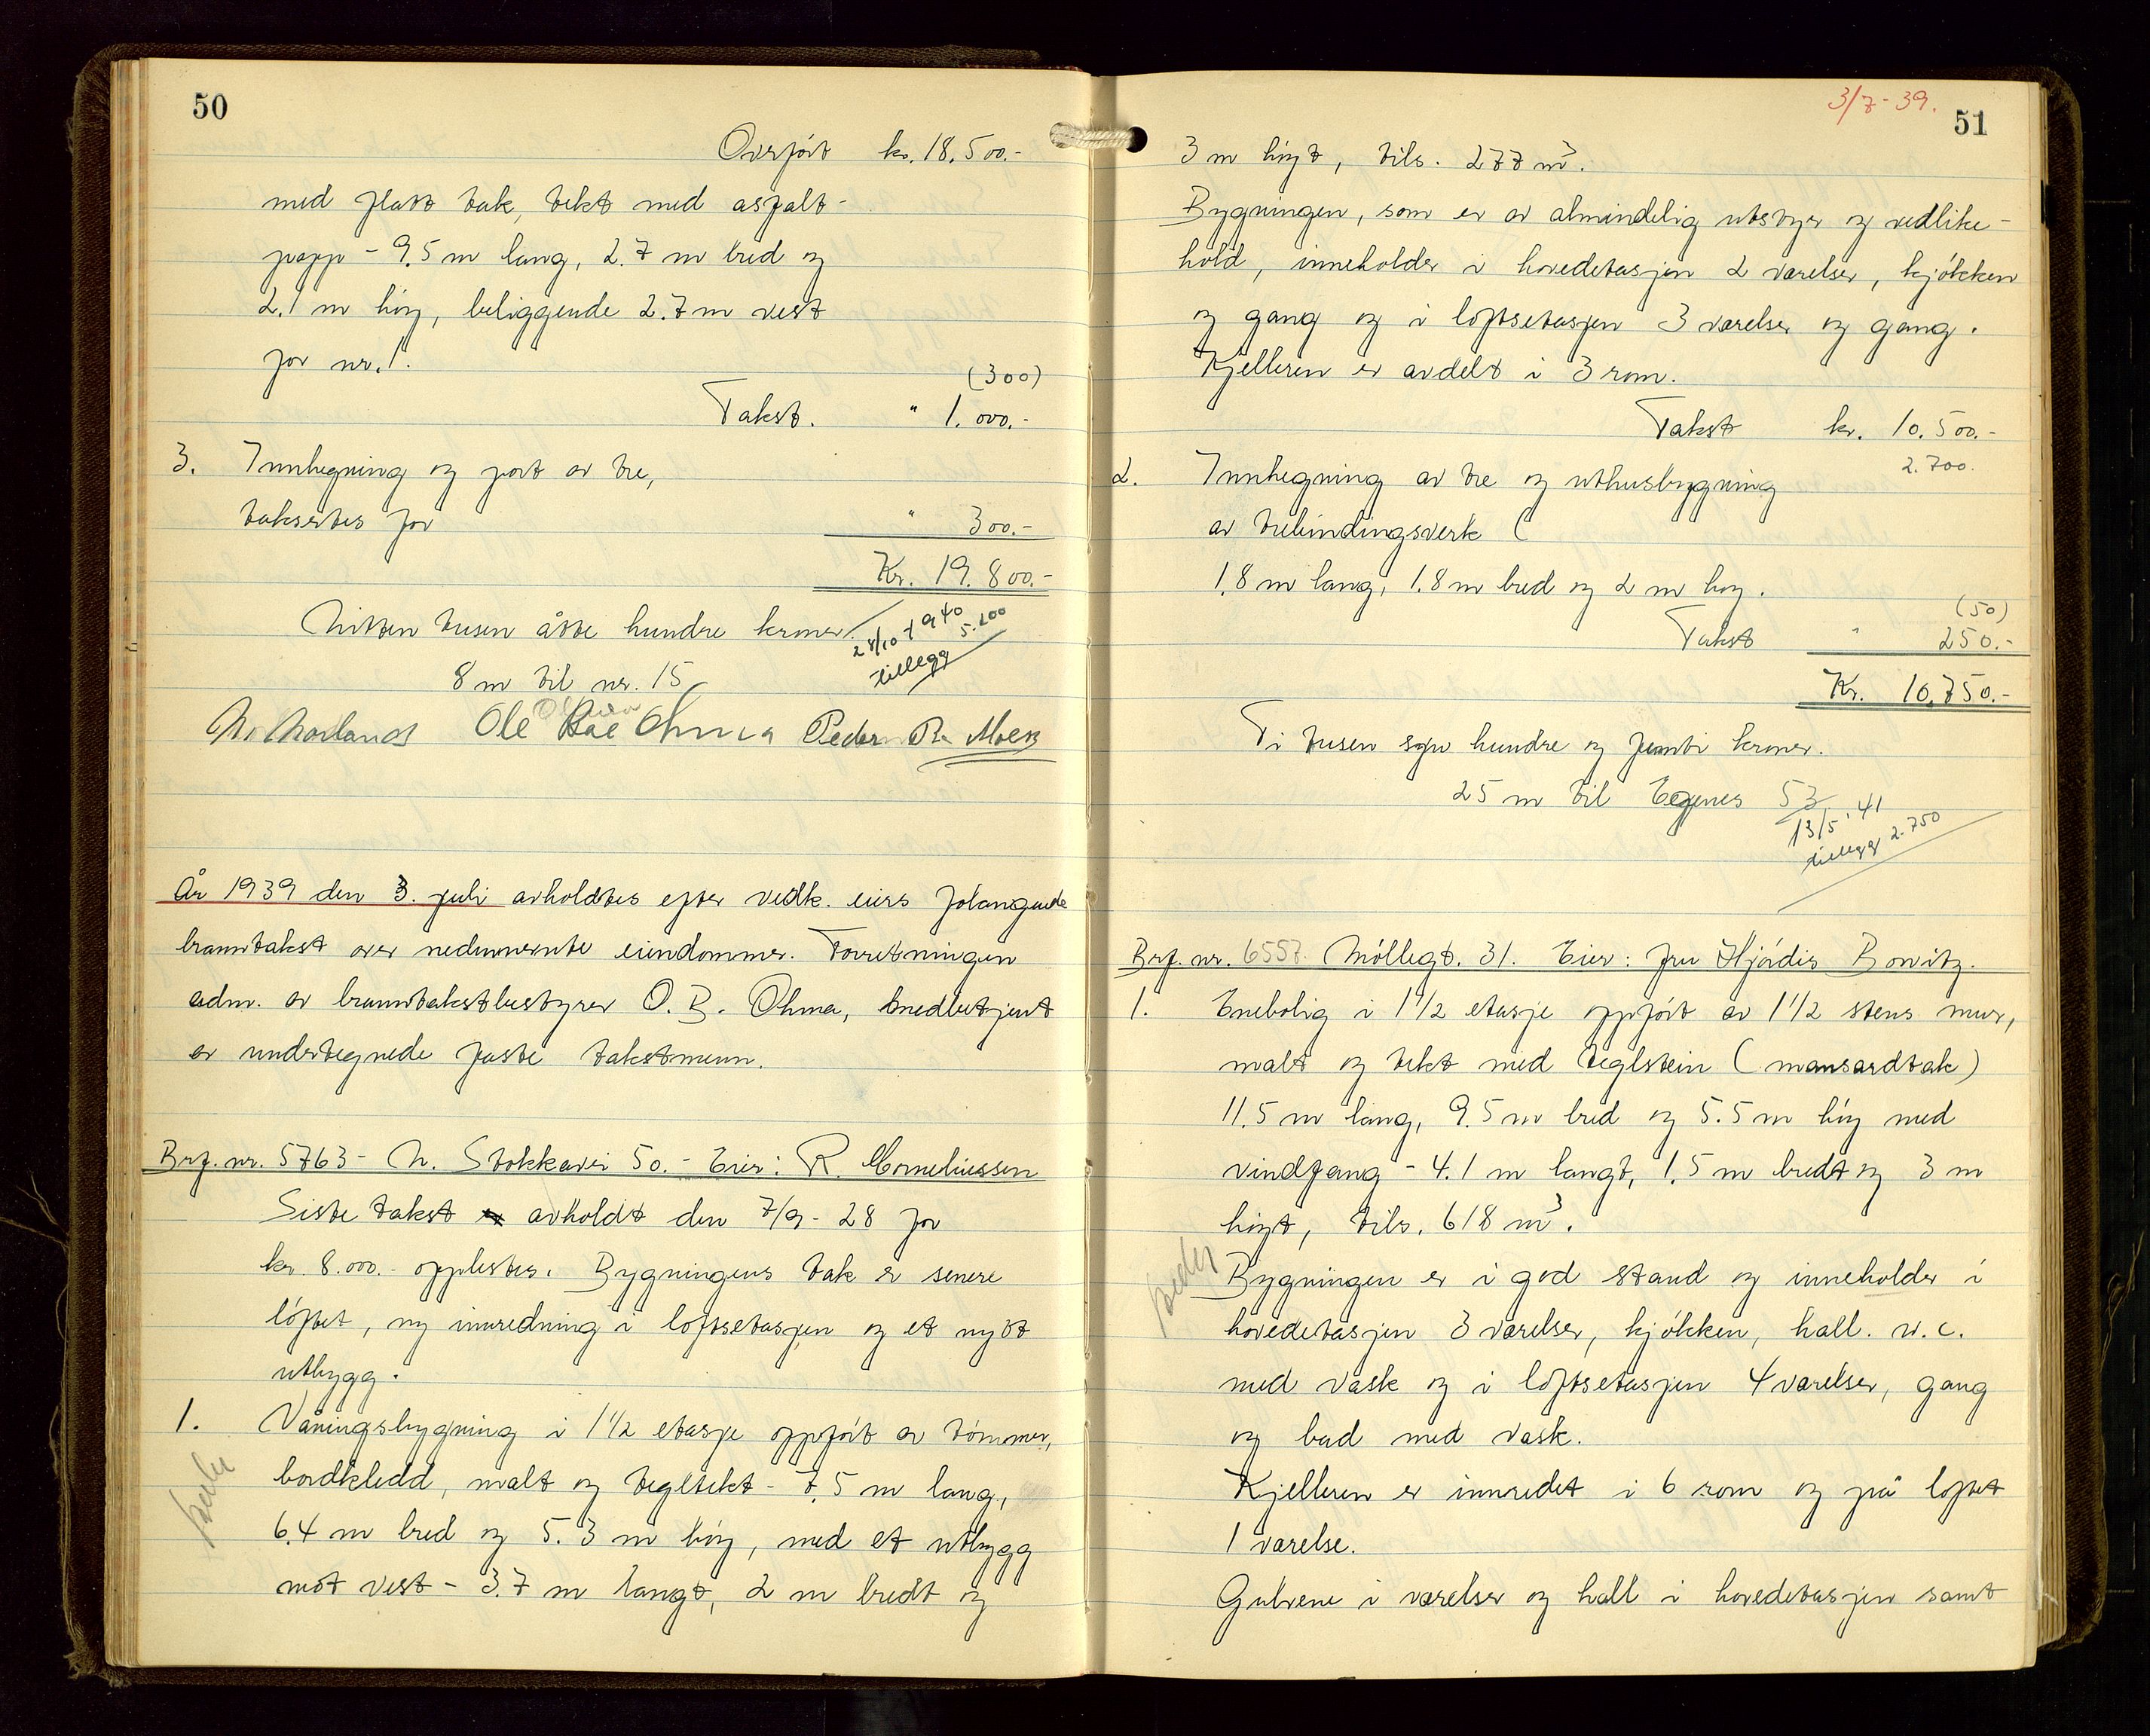 50
Overført kr. 18.500.-
med flatt tak, tekt med asfalt-
papp - 9.5 m lang, 2.7 m bred og
2.1 m høy, beliggende 2.7 m vest
for nr. 1.
(300)
Takst. " 1.000.-
3. Innhegning og port av tre,
takseres for " 300.-
Kr. 19.800.-
Nitten tusen åtte hundre kroner.
28/10 1940
tillegg 5.200
8 m til nr. 15
Ole Røe Ohma Peder R. Moen
År 1939 den 3. juli avholdtes efter vedk. eiers forlangende
branntakst over nedennevnte eiendommer. Forretningen
adm. av branntakstbestyrer O. B. Ohma, medbetjent
av undertegnede faste takstmenn.
Brf. nr. 5763 - N. Stokkavei 50. - Eier: R. Corneliussen
Siste takst avholdt den 7/9 - 28 for
kr. 8.000.- opplestes. Bygningens tak er senere
løftet, ny innredning i loftsetasjen og et nytt
utbygg.
1. Våningsbygning i 1 1/2 etasje oppført av tømmer,
bordkledd, malt og tegltekt - 7.5 m lang,
6.4 m bred og 5.3 m høy, med et utbygg
mot vest - 3.7 m langt, 2 m bredt og
3/7 - 39.
51
3 m høyt, tils. 277 m³.
Bygningen, som er av almindelig utstyr og vedlike-
hold, inneholder i hovedetasjen 2 værelser, kjøkken
og gang og i loftsetasjen 3 værelser og gang.
Kjelleren er avdelt i 3 rom.
Takst kr. 10.500.-
2.700.
2. Innhegning av tre og uthusbygning
av trebindingsverk (
1.8 m lang, 1.8 m bred og 2 m høy.
(50)
Takst " 250.-
Kr. 10.750.-
Ti tusen syv hundre og femti kroner.
25 m til Egenes 53
13/5. 41
tillegg 2.750
Brf. nr. 6557. Møllegt. 31. Eier: Fru Hjørdis Bowitz.
1. Enebolig i 1 1/2 etasje oppført av 1 1/2 stens mur,
malt og tekt med teglstein (mansardtak)
11.5 m lang, 9.5 m bred og 5.5 m høy med
vindfang - 4.1 m langt, 1.5 m bredt og 3 m
høyt, tils. 618 m³.
Bygningen er i god stand og inneholder i
hovedetasjen 3 værelser, kjøkken, hall. w.c.
med vask og i loftsetasjen 4 værelser, gang
og bad med vask.
Kjelleren er innredet i 6 rom og på loftet
1 værelse.
Gulvene i værelser og hall i hovedetasjen samt